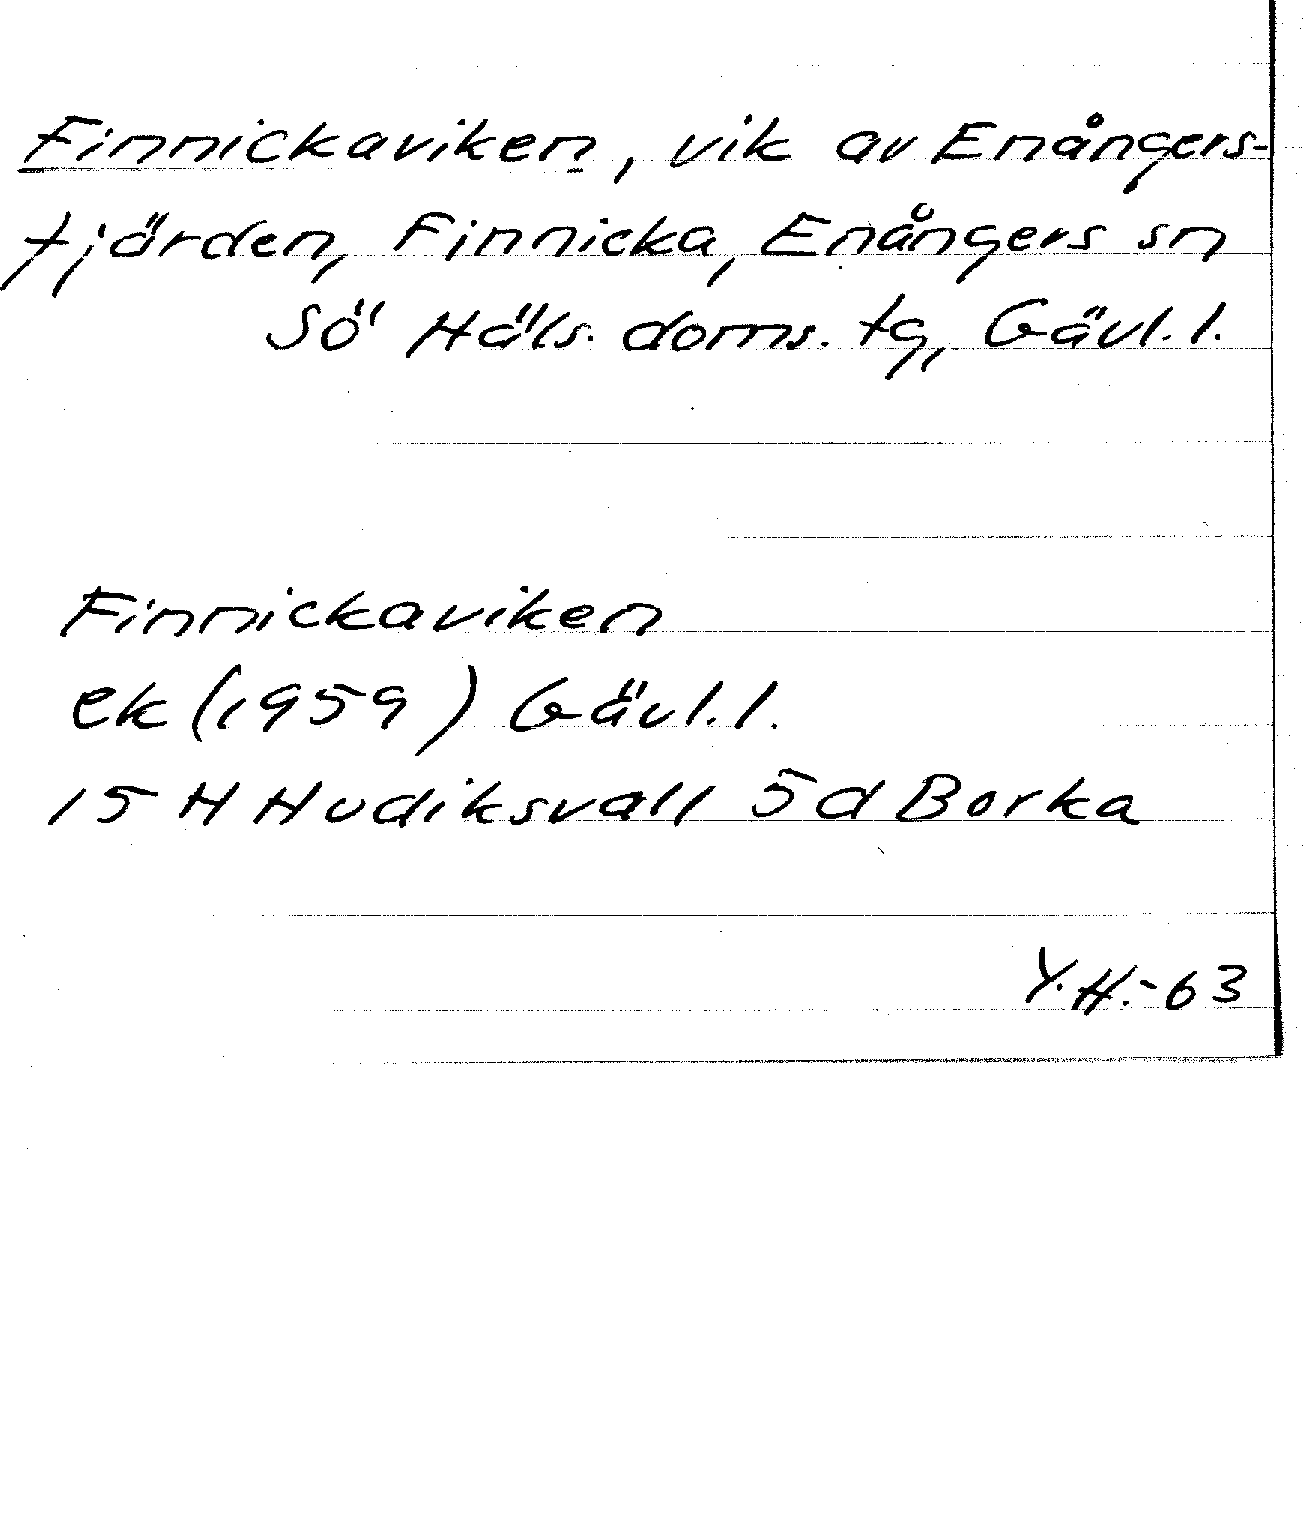 Finnickaviken, vik av Enångers-
fjärden, Finnicka, Enångers sn
Sö Häls. doms. tg, Gävl. l.
Finnickaviken
ek (1959) Gävl. l.
15 H Hudiksvall 5d Borka
Y.H.-63